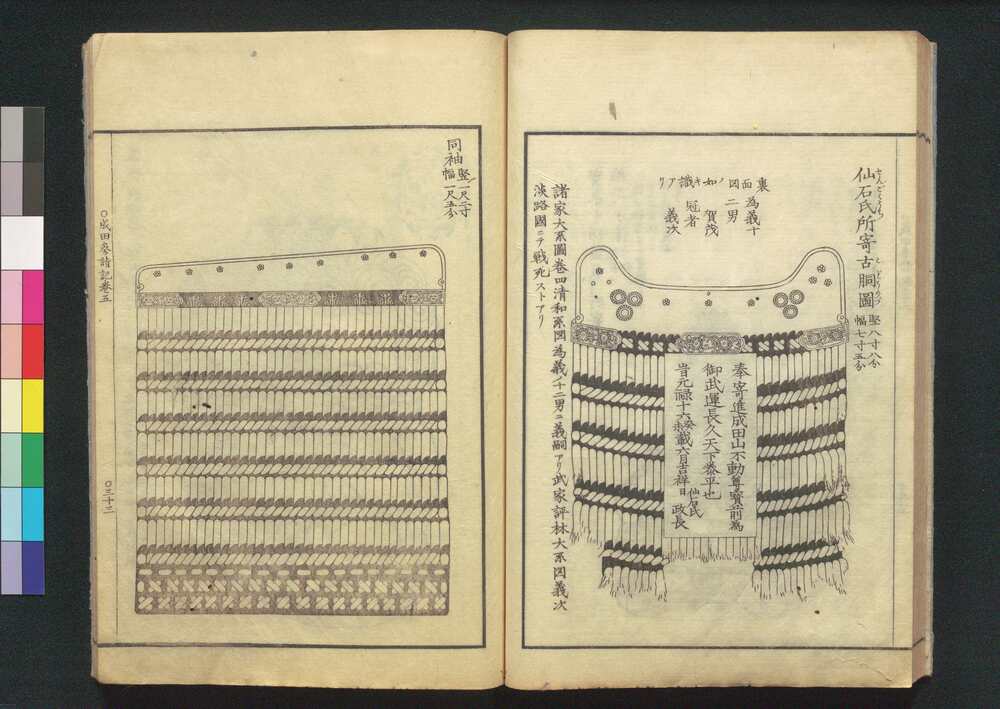 仙石氏所寄古胴圖 竪八寸八分 幅七寸五分
裏面図ノ如キ識アリ
為義十二男
賀茂冠者
義次
奉寄進成田山不動尊寶前為
御武運長久天下泰平也
昔元禄十六癸未載六月吉祥日 仙石氏 政長
諸家大系圖巻四清和系図為義ノ十二男ニ義嗣アリ武家評林大系図義次
淡路國ニテ戦死ストアリ
同袖 竪一尺二寸 幅一尺五分
○成田参詣記巻五
○三十二